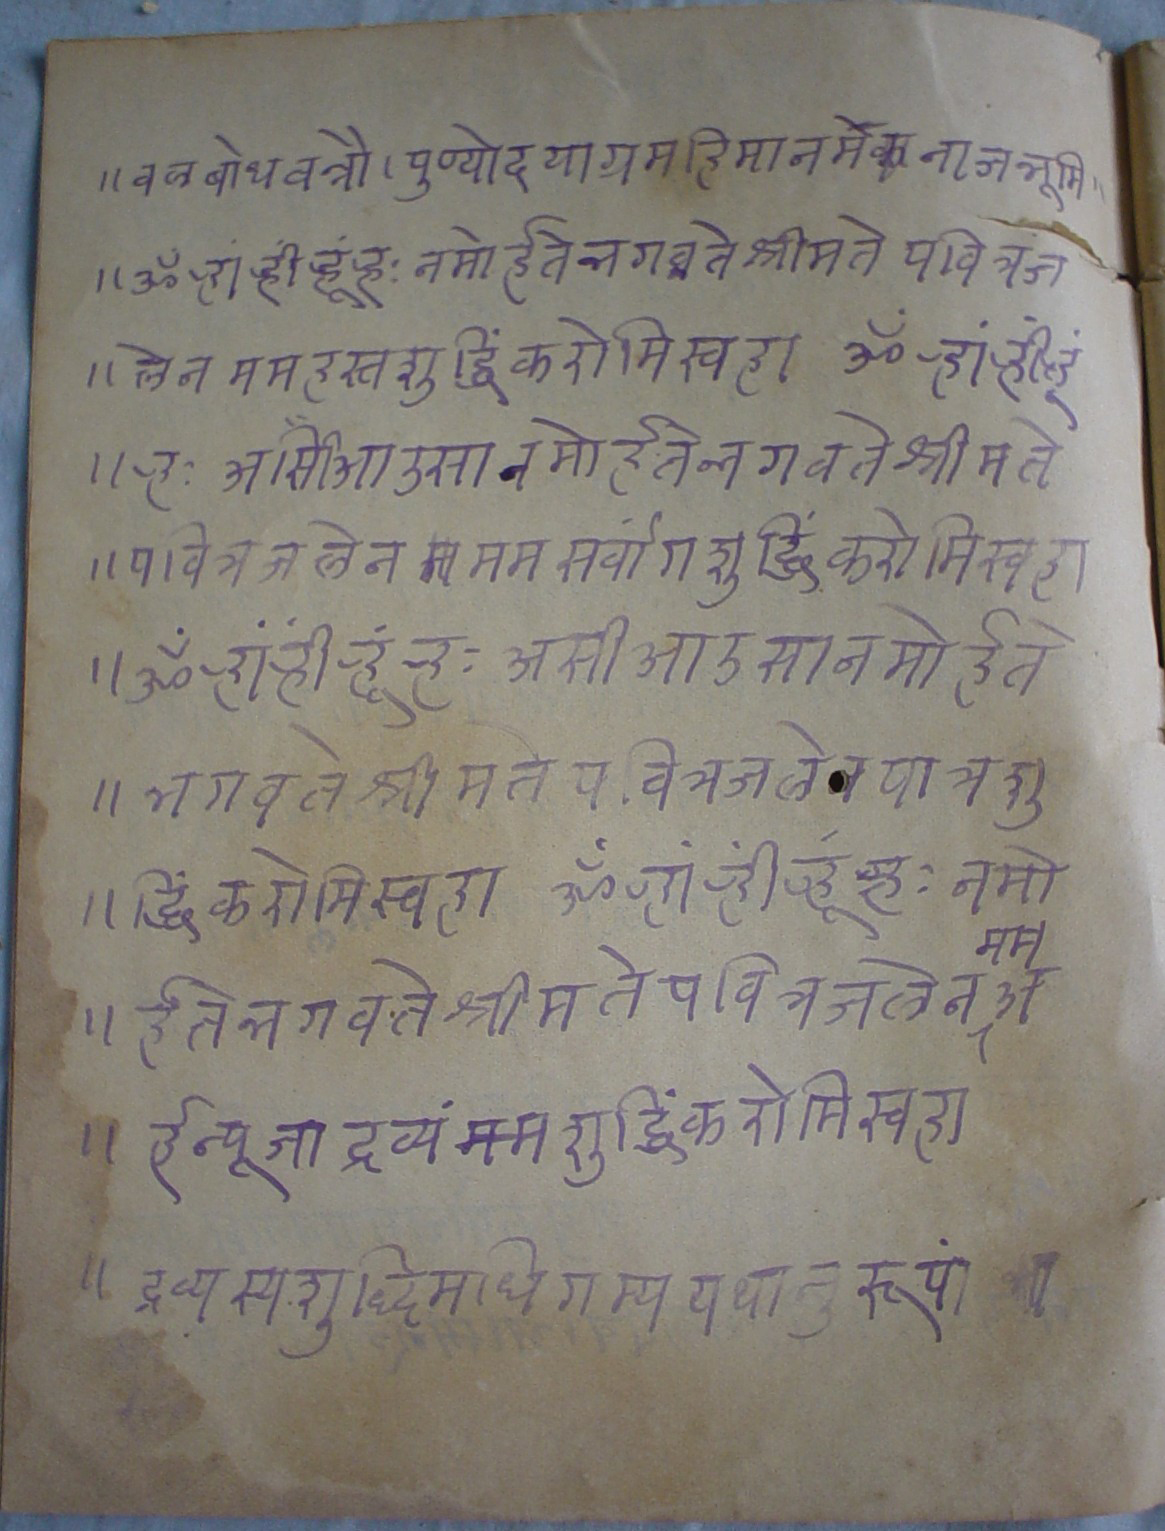 ॥ वल बोध वन्नौ । पुण्योदयाग्रमहिमानमेक नाजभूमि ॥
॥ ॐ ह्रां ह्रीं ह्रूं ह्रः नमो र्हते भगवते श्रीमते पवित्रज
॥ लेन मम हस्त शुद्धिं करोमि स्वहा ॐ ह्रां ह्रीं ह्रूं
॥ ह्रः असीआउसा नमो र्हते भगवते श्रीमते
॥ पवित्र जलेन मम सर्वांग शुद्धिं करोमि स्वहा
॥ ॐ ह्रां ह्रीं ह्रूं ह्रः असीआउसा नमो र्हते
॥ भगवते श्रीमते पवित्रजलेन पात्र शु
॥ द्धिं करोमि स्वहा ॐ ह्रां ह्रीं ह्रूं ह्रः नमो
मम
॥ र्हते भगवते श्रीमते पवित्र जलेन अ
॥ र्हन्पूजा द्रव्यं मम शुद्धिं करोमि स्वहा
॥ द्रव्यस्य शुद्धिमधिगम्य यथानुरूपां